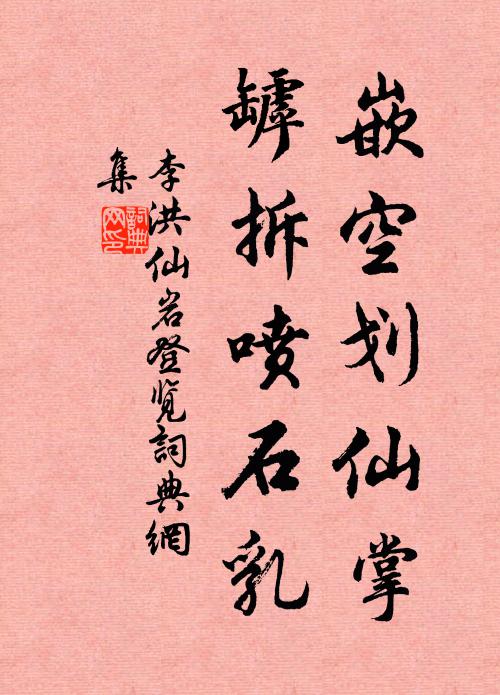 嵌空划仙掌
罅拆喷石乳
李洪仙岩登览詞典網
集
詞典网印